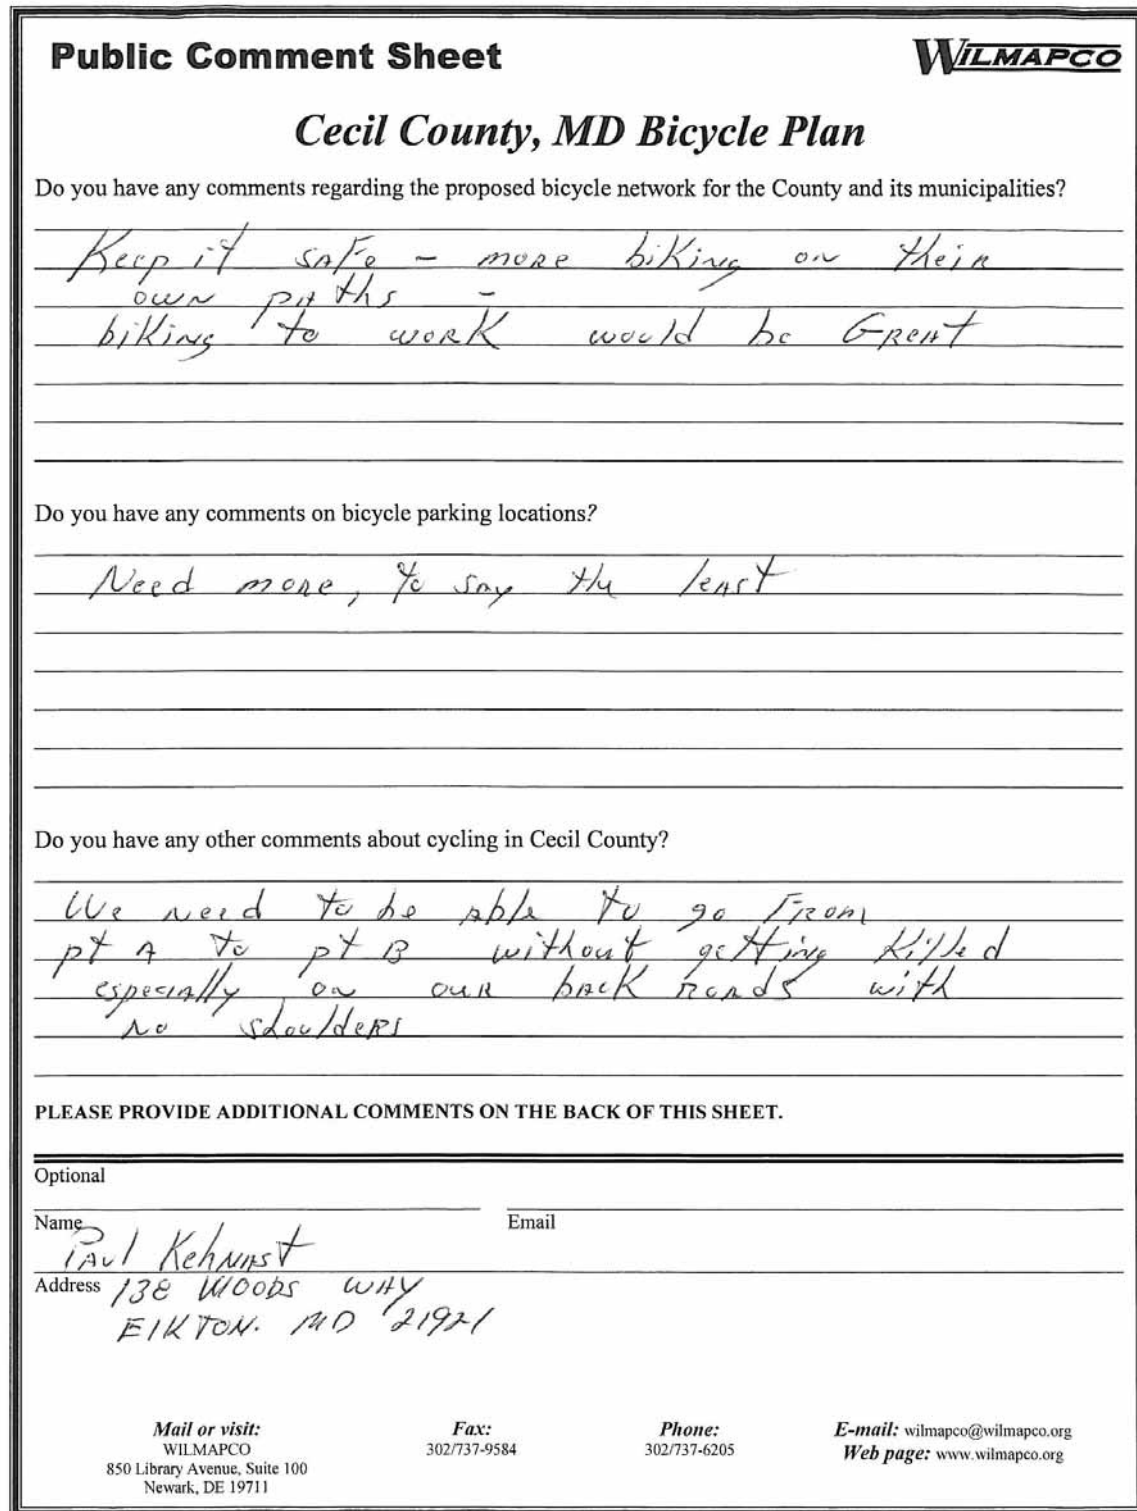 Public Comment Sheet
WILMAPCO
Cecil County, MD Bicycle Plan
Do you have any comments regarding the proposed bicycle network for the County and its municipalities?
Keep it safe - more biking on their
own paths -
biking to work would be Great
Do you have any comments on bicycle parking locations?
Need more, to say the least
Do you have any other comments about cycling in Cecil County?
We need to be able to go From
pt A to pt B without getting killed
especially on our back roads with
no shoulders
PLEASE PROVIDE ADDITIONAL COMMENTS ON THE BACK OF THIS SHEET.
Optional
Name Email
Paul
Address 138 Woods WAY
ElKTON. MD 21921
Mail or visit: Fax: Phone: E-mail: wilmapco@wilmapco.org
WILMAPCO 302/737-9584 302/737-6205 Web page: www.wilmapco.org
850 Library Avenue, Suite 100
Newark, DE 19711